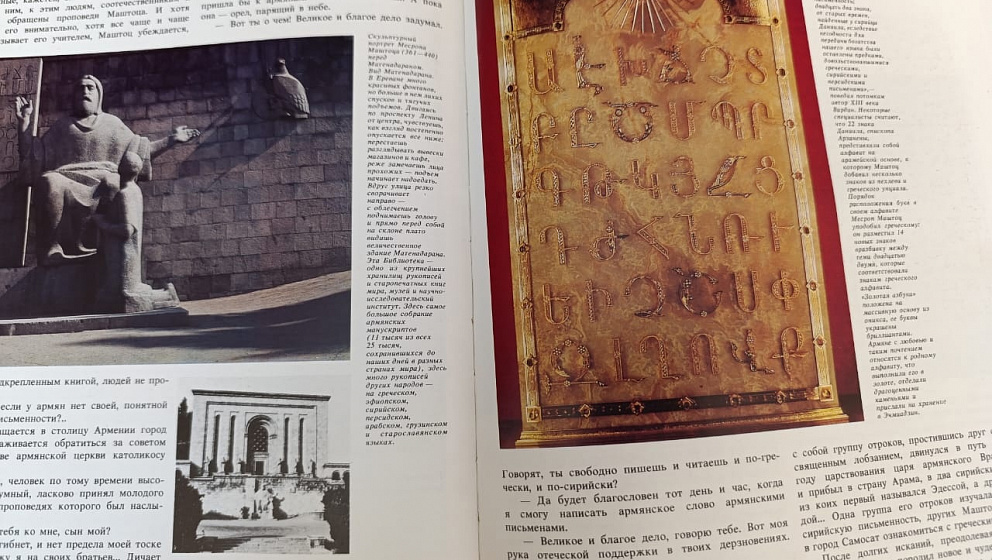 ним, к этим людям, соотечественникам
обращены проповеди Маштоца. И хотя
его внимательно, хотя все чаще и чаще
зывает его учителем, Маштоц убеждается,
пришла бы к
она — орел, парящий в небе.
— Вот ты о чем! Великое и благое дело задумал.
Скульптурный
портрет Месропа
Маштоца (361—440)
перед
Матенадараном.
Вид Матенадарана.
В Ереване много
красивых фонтанов,
но больше в нем лихих
спусков и тягучих
подъемов. Двигаясь
по проспекту Ленина
от центра, чувствуешь,
как взгляд постепенно
опускается все ниже:
перестаешь
разглядывать вывески
магазинов и кафе,
реже замечаешь лица
прохожих — подъем
начинает надоедать.
Вдруг улица резко
сворачивает
направо —
с облегчением
поднимаешь голову
и прямо перед собой
на склоне плато
видишь
величественное
здание Матенадарана.
Эта Библиотека —
одно из крупнейших
хранилищ рукописей
и старопечатных книг
мира, музей и научно-
исследовательский
институт. Здесь самое
большое собрание
армянских
манускриптов
(11 тысяч из всех
25 тысяч,
сохранившихся до
наших дней в разных
странах мира), здесь
много рукописей
других народов —
на греческом,
эфиопском,
сирийском,
персидском,
арабском, грузинском
и старославянском
языках.
дкрепленным книгой, людей не про-
если у армян нет своей, понятной
исьменности?..
ащается в столицу Армении город
аживается обратиться за советом
ве армянской церкви католикосу
, человек по тому времени высо-
умный, ласково принял молодого
проповедях которого был наслы-
тебя ко мне, сын мой?
гибнет, и нет предела моей тоске
жу я на своих братьев... Личает
Ա Է Ի Ճ Չ Տ
Բ Ը Ծ Մ Պ Ր
Գ Թ Կ Յ Ջ Ց
Դ Ժ Հ Ն Ռ Ւ
Ե Ի Ձ Շ Ս Փ
Զ Լ Ղ Ո Վ Ք
двадцать два знака,
от старых времен,
найденные у сирийца
Даниила, вследствие
негодности для
передачи богатства
нашего языка были
оставлены предками,
довольствовавшимися
греческими,
сирийскими и
персидскими
письменами»,—
поведал потомкам
автор XIII века
Вардан. Некоторые
специалисты считают,
что 22 знака
Даниила, епископа
Арамеянц,
представляли собой
алфавит на
арамейской основе, к
которому Маштоц
добавил несколько
знаков из пехлеви и
греческого унциала.
Порядок
расположения букв в
своем алфавите
Месроп Маштоц
уподобил греческому:
он разместил 14
новых знаков
вразбивку между
теми двадцатью
двумя, которые
соответствовали
знакам греческого
алфавита.
«Золотая азбука»
положена на
массивную основу из
оникса, ее буквы
украшены
бриллиантами.
Армяне с любовью и
таким почтением
относятся к родному
алфавиту, что
выполнили его в
золоте, отделали
драгоценными
камнями и
прислали на хранение
в Эчмиадзин.
Говорят, ты свободно пишешь и читаешь и по-гре-
чески, и по-сирийски?
— Да будет благословен тот день и час, когда
я смогу написать армянское слово армянскими
письменами.
— Великое и благое дело, говорю тебе. Вот моя
рука отеческой поддержки в твоих дерзновениях.
с собой группу отроков, простившись друг с
священным лобзанием, двинулся в путь
году царствования царя армянского
и прибыл в страну Арама, в два сирийск
из коих первый назывался Эдессой, а др
дой... Одна группа его отроков изучала
сирийскую письменность, других Машто
в город Самосат ознакомиться с гречески
После долгих исканий, преодолева